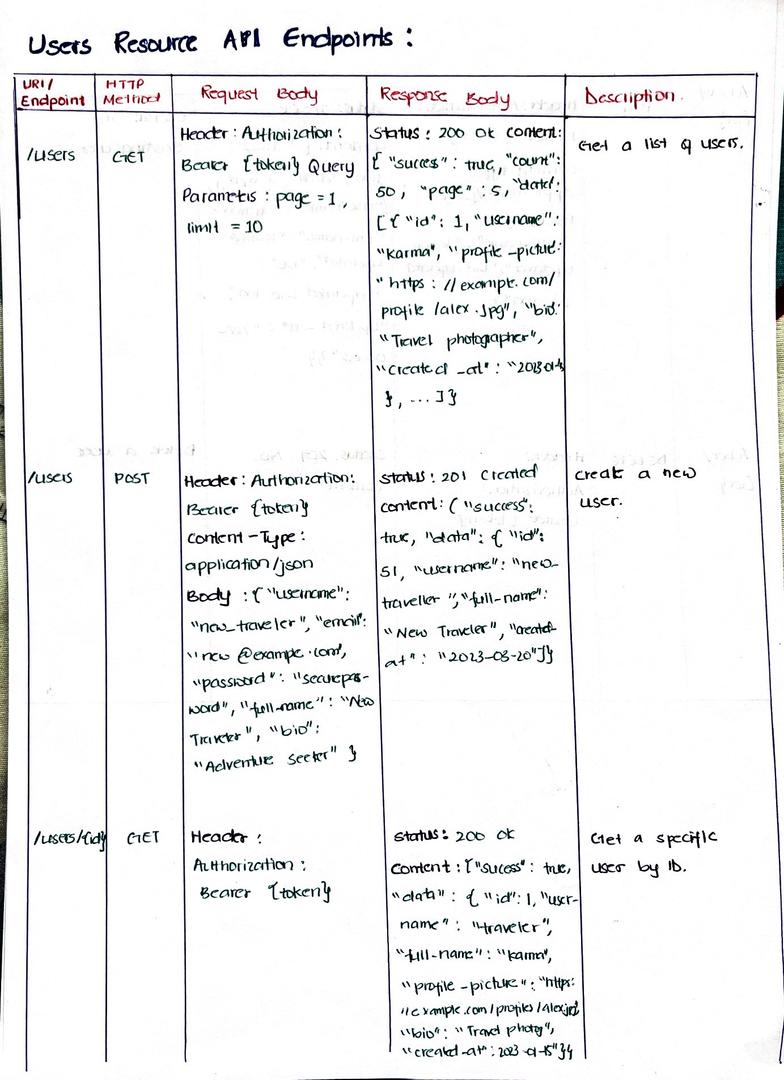 Users Resource API Endpoints :
URI/ Endpoint
HTTP Method
Request Body
Response Body
Description.
/users
GET
Header : Authorization :
Bearer {token} Query
Parameters : page = 1 ,
limit = 10
Status : 200 Ok content :
{ "succes" : true, "count":
50 , "page" : 5, "data":
[ { "id" : 1, "username" :
"Karma", "profile_picture:
"https : //example.com/
profile /alex.jpg", "bio":
"Travel photographer",
"created _at" : "2023-01-
} , ... ] }
Get a list of users.
/users
POST
Header : Authorization:
Bearer {token}
Content-Type :
application/json
Body : { "username" :
"new_traveler", "email":
"new @example.com",
"password" : "securepas-
word", "full-name" : "New
Traveler", "bio":
"Adventure Seeker" }
Status : 201 Created
content : { "success":
true, "data": { "id":
51, "username": "new_
traveller ", "full-name":
"New Traveler", "created-
at" : "2023-08-20"}}
create a new
user.
/users/{id}
GET
Header :
Authorization :
Bearer {token}
Status : 200 Ok
Content : { "sucess" : true,
"data" : { "id": 1, "user-
name" : "traveler",
"full-name" : "karma",
"profile -picture" : "https:
//example.com/profiles/alex.jpg
"bio" : "Travel photog",
"created-at" : 2023-01-15"}}
Get a specific
user by ID.